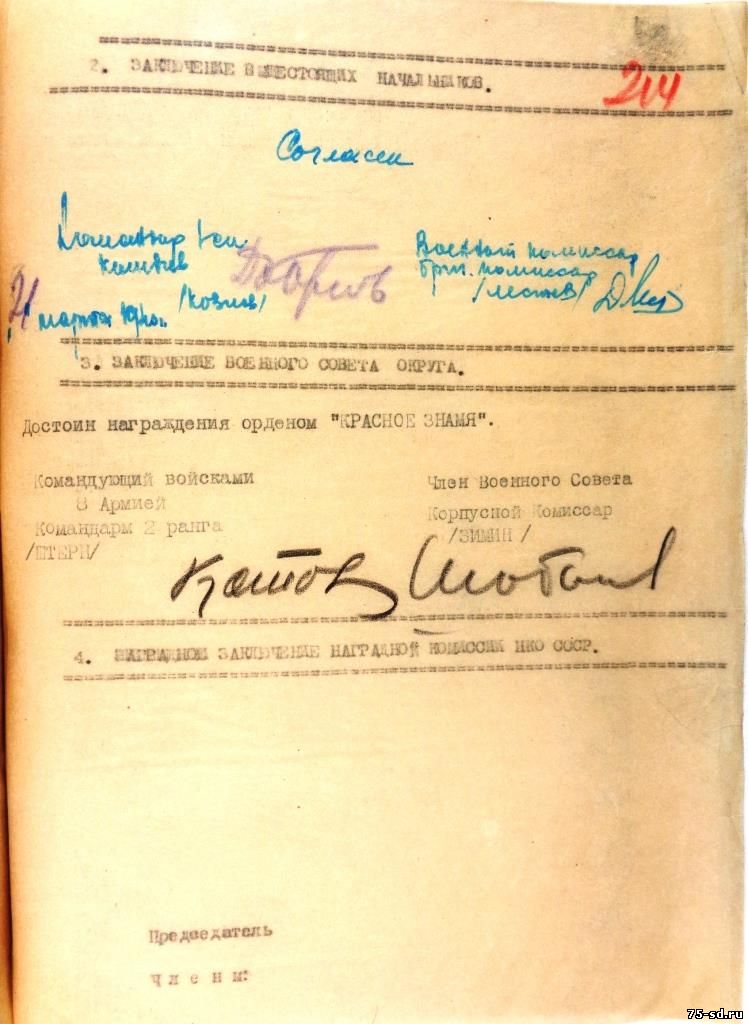 2. ЗАКЛЮЧЕНИЕ ВЫШЕСТОЯЩИХ НАЧАЛЬНИКОВ.
204
Согласен
Командир 1 ск
комдив
/Козлов/
21 марта 1940г.
Военный комиссар
бриг. комиссар
3. ЗАКЛЮЧЕНИЕ ВОЕННОГО СОВЕТА ОКРУГА.
Достоин награждения орденом "КРАСНОЕ ЗНАМЯ".
Командующий войсками
8 Армией
Командарм 2 ранга
/ШТЕРН/
Член Военного Совета
Корпусной Комиссар
/ЗИМИН/
4. ЗАКЛЮЧЕНИЕ НАГРАДНОЙ КОМИССИИ НКО СССР.
Председатель
Члены:
75-sd.ru